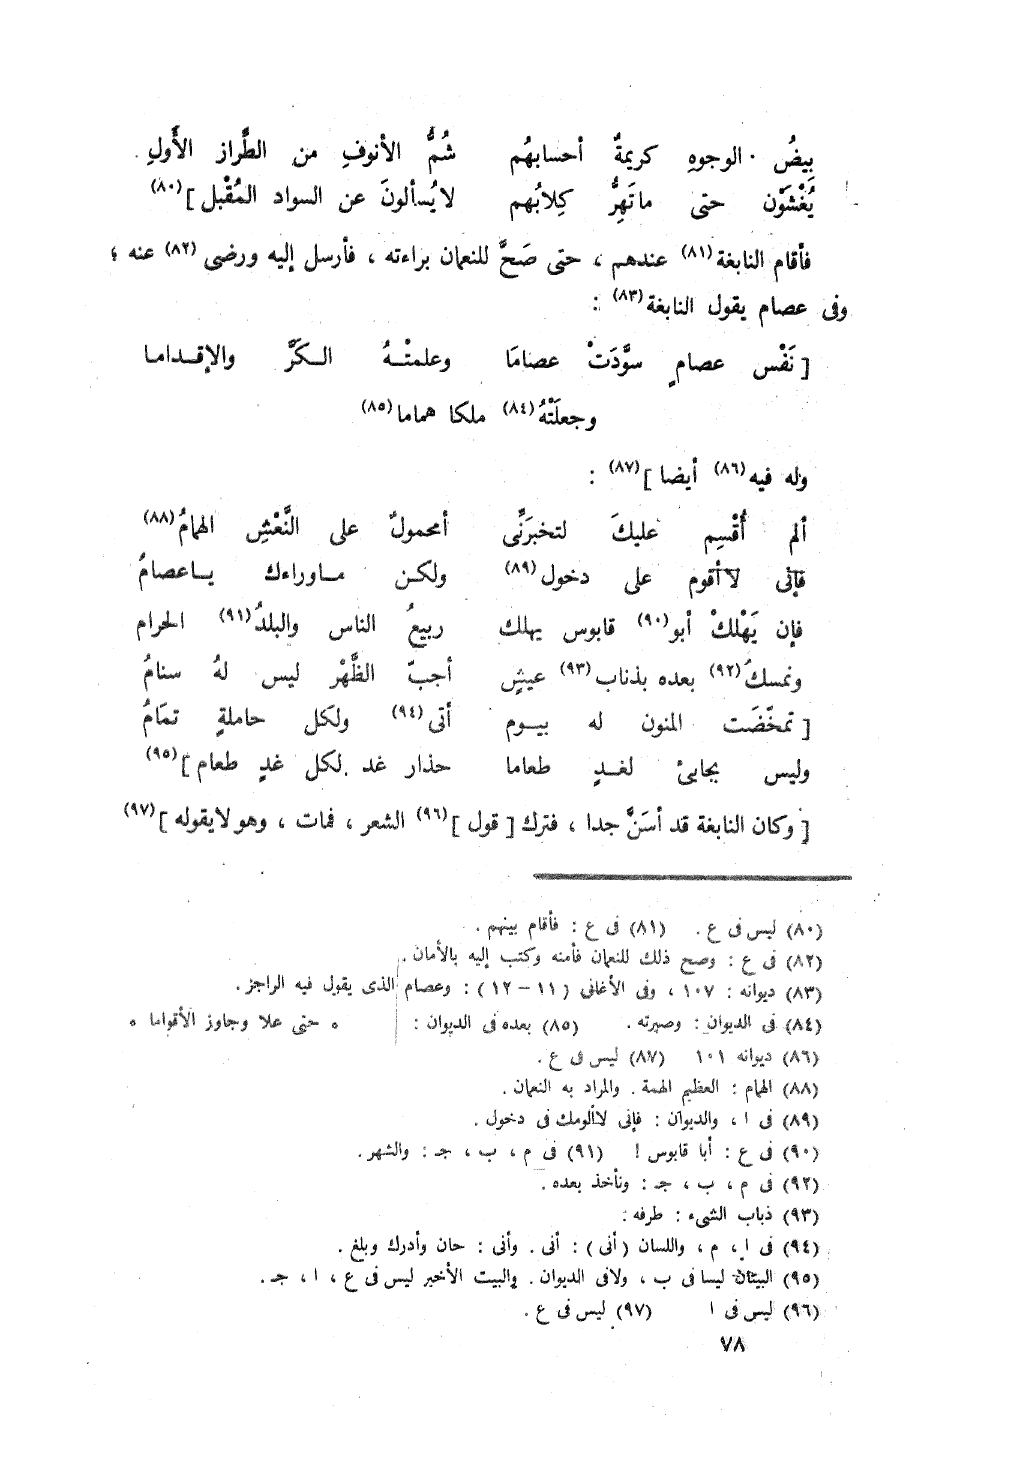 بِيضُ الوجوهِ كريمةٌ أحسابهُم شُمُّ الأنوفِ من الطَّراز الأَولِ
يُغْشَوْن حتى ماتَهِرُّ كِلابُهم لايُسألونَ عن السواد المُقْبل ] (٨٠)
فأقام النابغة (٨١) عندهم ، حتى صَحَّ للنعمان براءته ، فأرسل إليه ورضى (٨٢) عنه ؛
وفى عصام يقول النابغة (٨٣) :
[ نَفْس عصامٍ سوَّدَتْ عصامَا وعلمتْــهُ الــكَرَّ والإقــداما
وجعلَتْهُ (٨٤) ملكا هماما (٨٥)
وله فيه (٨٦) أيضا ] (٨٧) :
ألم أُقْسِم عليكَ لتخبرَنِّى أمحمولٌ على النَّعْشِ الهمامُ (٨٨)
فإنى لاأقوم على دخول (٨٩) ولكـن مـاوراءك يـاعصامُ
فإن يَهْلكْ أبو (٩٠) قابوس يهلك ربيعُ الناس والبلدُ (٩١) الحرام
ونمسكُ (٩٢) بعده بذناب (٩٣) عيشٍ أجبّ الظَّهْر ليس لهُ سنامُ
[ تمخّضَت المنون له بيــوم أتى (٩٤) ولكل حاملةٍ تمَامُ
وليس بجابئ لغــدٍ طعاما حذار غد لكل غدٍ طعام ] (٩٥)
[ وكان النابغة قد أسَنَّ جدا ، فترك [ قول ] (٩٦) الشعر ، فمات ، وهو لايقوله ] (٩٧)
(٨٠) ليس فى ع . (٨١) فى ع : فأقام بينهم .
(٨٢) فى ع : وصح ذلك للنعمان فأمنه وكتب إليه بالأمان .
(٨٣) ديوانه : ١٠٧ ، وفى الأغانى ( ١١ – ١٢ ) : وعصام الذى يقول فيه الراجز .
(٨٤) فى الديوان : وصيرته . (٨٥) بعده فى الديوان : * حتى علا وجاوز الأقواما *
(٨٦) ديوانه ١٠١ (٨٧) ليس فى ع .
(٨٨) الهمام : العظيم الهمة . والمراد به النعمان .
(٨٩) فى ا ، والديوان : فإنى لاألومك فى دخول .
(٩٠) فى ع : أبا قابوس ! (٩١) فى م ، ب ، جـ : والشهر .
(٩٢) فى م ، ب ، جـ : ونأخذ بعده .
(٩٣) ذباب الشىء : طرفه :
(٩٤) فى ا ، م ، واللسان ( أنى ) : أنى . وأنى : حان وأدرك وبلغ .
(٩٥) البيتان ليسا فى ب ، ولافى الديوان . والبيت الأخير ليس فى ع ، ا ، جـ .
(٩٦) ليس فى ا (٩٧) ليس فى ع .
٧٨